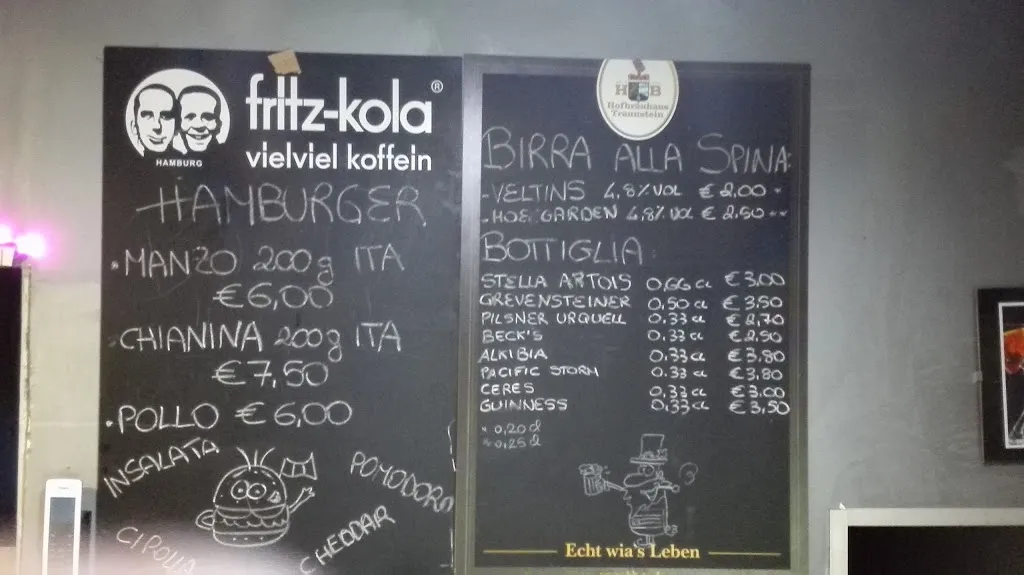 fritz-kola®
HAMBURG
vielviel koffein
HAMBURGER
• MANZO 200g ITA
€6,00
• CHIANINA 200g ITA
€7,50
• POLLO €6,00
INSALATA
POMODORO
CIPOLLA
CHEDDAR
HB
Hofbräuhaus
Traunstein
BIRRA ALLA SPINA:
- VELTINS 4,8% VOL € 2,00 *
- HOEGARDEN 4,8% VOL € 2,50 **
BOTTIGLIA:
STELLA ARTOIS 0,66 cl € 3,00
GREVENSTEINER 0,50 cl € 3,50
PILSNER URQUELL 0.33 cl € 2,70
BECK'S 0.33 cl € 2,50
ALKIBIA 0.33 cl € 3,80
PACIFIC STORM 0.33 cl € 3,80
CERES 0,33 cl € 3,00
GUINNESS 0,33 cl € 3,50
* 0,20 cl
** 0,25 cl
Echt wia's Leben